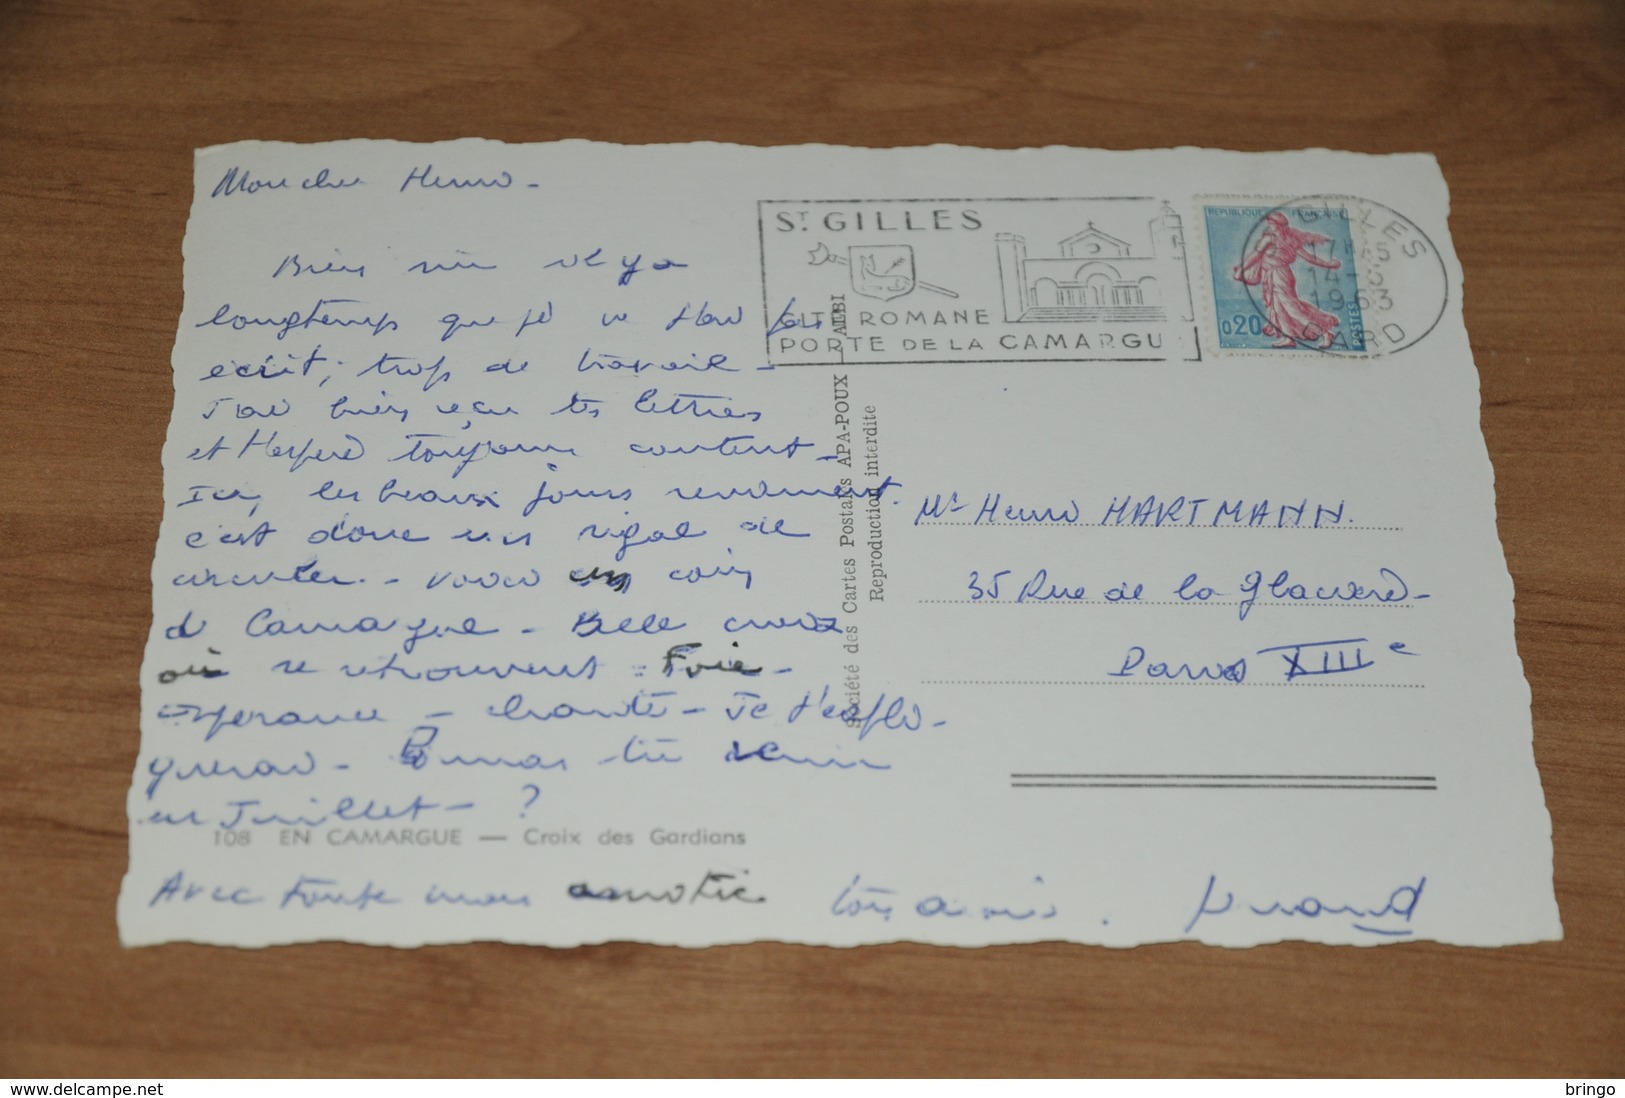 Mon cher Henri -
Bien sûr il y a
longtemps que je ne t'avais pas
écrit ; trop de travail -
J'ai bien reçu tes lettres
et t'espère toujours content -
Ici, les beaux jours reviennent.
c'est donc un régal de
circuler. - Voici un coin
de Camargue - Belle croix
où se retrouvent : Foi -
espérance - charité - Je t'expli-
querai - Pourras-tu venir
en Juillet - ?
108 EN CAMARGUE — Croix des Gardians
Avec toute mon amitié
ton ami .
Société des Cartes Postales APA-POUX - ALBI
Reproduction interdite
ST GILLES
CITÉ ROMANE
PORTE DE LA CAMARGU
REPUBLIQUE FRANÇAISE
0,20
POSTES
GILLES
1963
GARD
Mr Henri HARTMANN.
35 Rue de la Glacière -
Paris XIIIe
www.delcampe.net
bringo